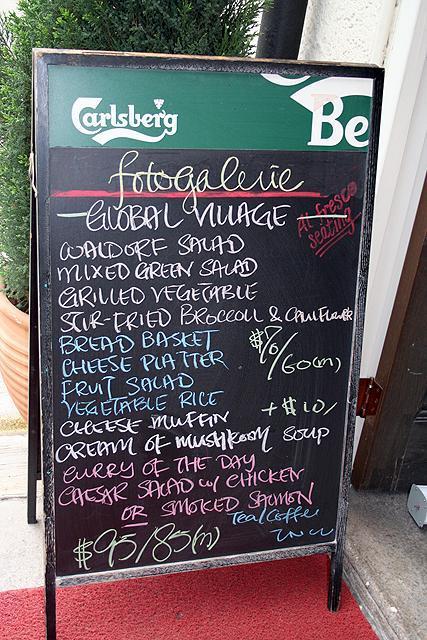 Carlsberg
Be
fotogalerie
GLOBAL VILLAGE
Al fresco
seating
WALDORF SALAD
MIXED GREEN SALAD
GRILLED VEGETABLE
STIR-FRIED BROCCOLI & CAULIFLOWER
BREAD BASKET
CHEESE PLATTER
FRUIT SALAD
VEGETABLE RICE
$70/60(m)
CHEESE MUFFIN
+$10/
CREAM OF MUSHROOM SOUP
CURRY OF THE DAY
CAESAR SALAD w/ CHICKEN
OR SMOKED SALMON
Tea/Coffee
$95/85(m)